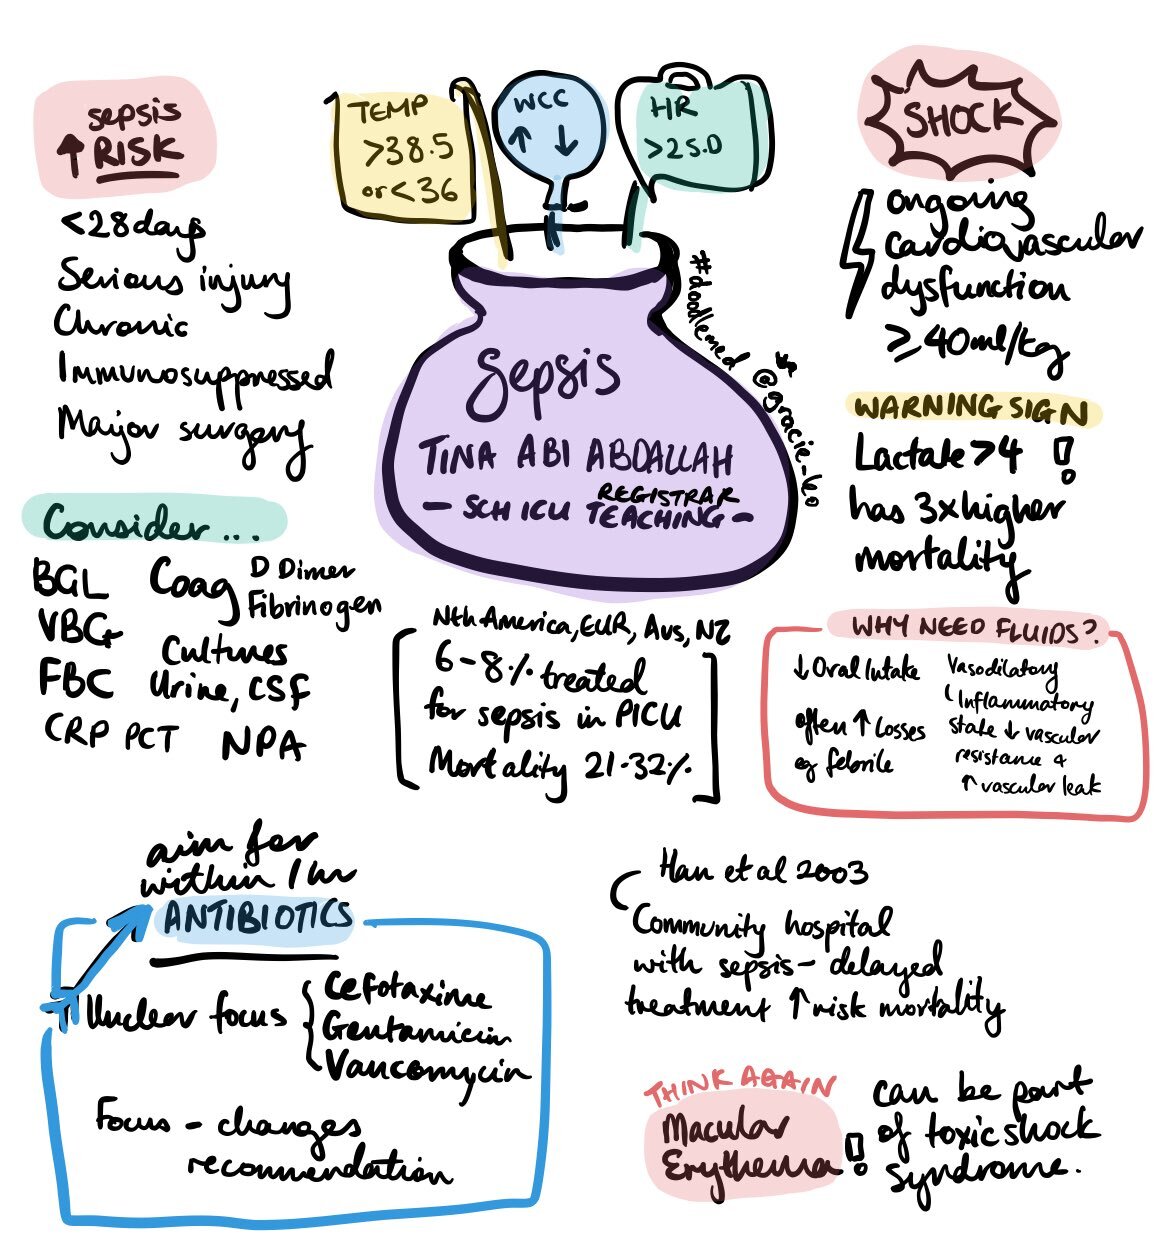 sepsis
↑ RISK
<28days
Serious injury
Chronic
Immunosuppressed
Major surgery
TEMP
>38.5
or <36
WCC
↑ ↓
HR
>2S.D
SHOCK
ongoing
cardiovascular
dysfunction
≥40ml/kg
WARNING SIGN
Lactate >4 !
has 3x higher
mortality
Sepsis
TINA ABI ABDALLAH
REGISTRAR
- SCH ICU TEACHING -
#doodlemed
@gracie_leo
Consider...
BGL Coag D Dimer
Fibrinogen
VBG
Cultures
FBC Urine, CSF
CRP PCT NPA
Nth America, EUR, Aus, NZ
6-8% treated
for sepsis in PICU
Mortality 21-32%
WHY NEED FLUIDS?
↓ Oral Intake
often ↑ losses
eg febrile
Vasodilatory
Inflammatory
state ↓ vascular
resistance +
↑ vascular leak
aim for
within 1 hr
ANTIBIOTICS
Unclear focus { Cefotaxime
Gentamicin
Vancomycin
Focus - changes
recommendation
Han et al 2003
Community hospital
with sepsis - delayed
treatment ↑ risk mortality
THINK AGAIN
Macular
Erythema !
can be part
of toxic shock
syndrome.